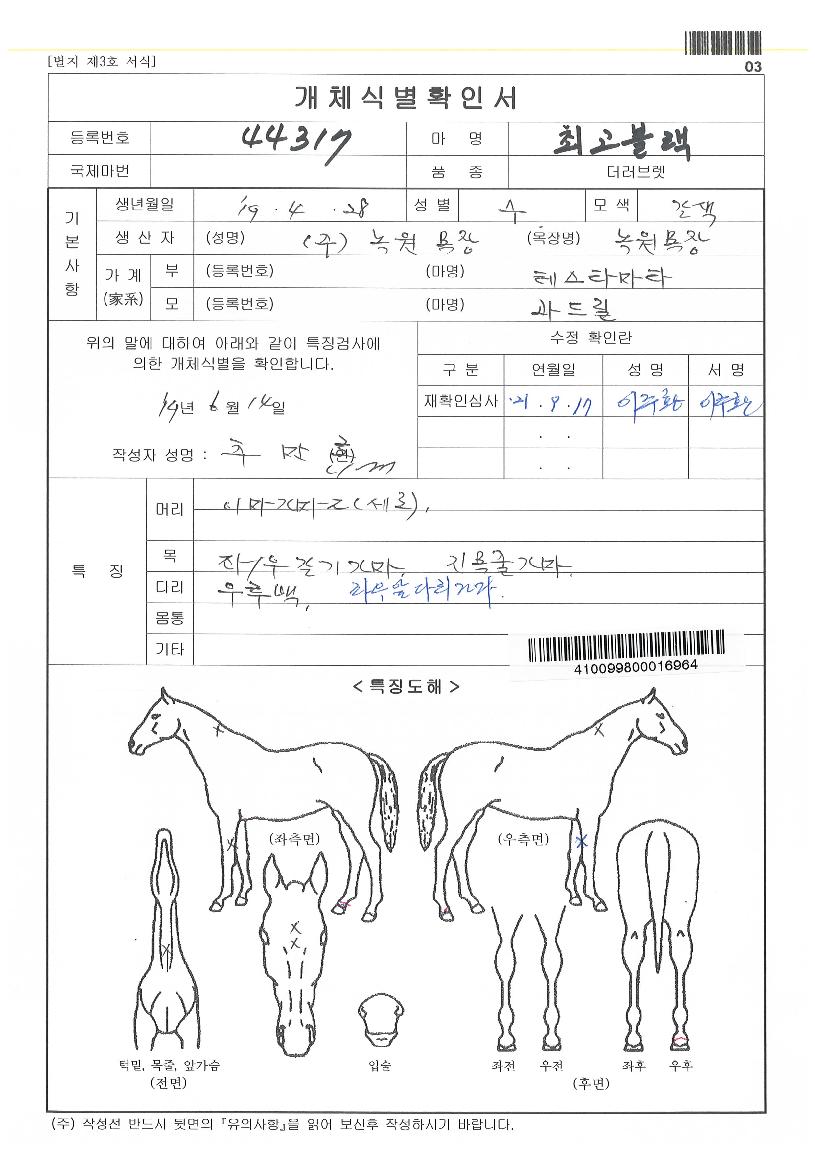 [별지 제3호 서식]
03
개체식별확인서
등록번호 44317 마 명 최고블랙
국제마번 품 종 더러브렛
기본사항
생년월일 '19 . 4 . 28 성 별 수 모 색 갈색
생 산 자 (성명) (주) 녹원 목장 (목장명) 녹원목장
가 계 (家系) 부 (등록번호) (마명) 테스타마타
모 (등록번호) (마명) 콰드릴
위의 말에 대하여 아래와 같이 특징검사에
의한 개체식별을 확인합니다.
'19년 6월 14일
작성자 성명 :
수정 확인란
구 분 연월일 성 명 서 명
재확인심사 '21 . 9 . 17
. .
. .
특 징
머리 이마가마-2(세로),
목 좌/우 갈기가마, 긴목줄가마.
다리 우후백, 좌우앞다리가마.
몸통
기타
410099800016964
< 특징도해 >
(좌측면) (우측면)
턱밑, 목줄, 앞가슴
(전면)
입술
좌전 우전 좌후 우후
(후면)
(주) 작성전 반드시 뒷면의 『유의사항』을 읽어 보신후 작성하시기 바랍니다.